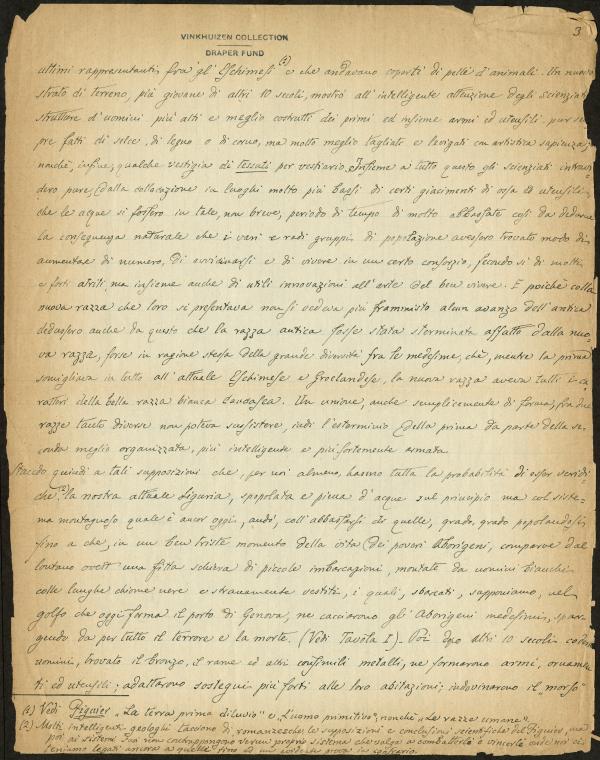 VINKHUIZEN COLLECTION
DRAPER FUND
3
ultimi rappresentanti fra gl' Eschimesi (1) e che andavano coperti di pelle d'animali. Un nuovo
strato di terreno, più giovane di altri 10 secoli, mostrò all'intelligente attenzione degli scienziati
strutture d'uomini più alti e meglio costrutti dei primi ed insieme armi ed utensili pur sem
pre fatti di selce, di legno o di corno, ma molto meglio tagliati e levigati con artistica sapienza;
nonchè, infine, qualche vestigia di tessuti per vestiario. Insieme a tutto questo gli scienziati intrav
dero pure, dalla collocazione in luoghi molto più bassi di certi giacimenti di ossa ed utensili,
che le acque si fossero in tale, non breve, periodo di tempo di molto abbassate così da dedurne
la conseguenza naturale che i vari e radi gruppi di popolazione avessero trovato modo di
aumentar di numero, di avvicinarsi e di vivere in un certo consorzio, fecondo sì di molti
e forti attriti, ma insieme anche di utili innovazioni all'arte del ben vivere. E poichè colla
nuova razza che loro si presentava non si vedeva più frammisto alcun avanzo dell'antica
dedussero anche da questo che la razza antica fosse stata sterminata affatto dalla nuo
va razza, forse in ragione stessa della grande diversità fra le medesime, chè, mentre la prima
somigliava in tutto all'attuale Eschimese e Groelandese, la nuova razza aveva tutti i ca
ratteri della bella razza bianca Caucasea. Un unione, anche semplicemente di forma, fra due
razze tanto diverse non poteva sussistere, indi l'esterminio della prima da parte della se
conda meglio organizzata, più intelligente e più fortemente armata.
Stando quindi a tali supposizioni che, per noi almeno, hanno tutta la probabilità di esser veridi
che (2), la nostra attuale Liguria, spopolata e piena d'acque sul principio ma col siste
ma montagnoso quale è ancor oggi, andò, coll'abbassarsi di quelle, grado, grado popolandosi
fino a che, in un ben triste momento della vita dei poveri Aborigeni, comparve dal
lontano ovest una fitta schiera di piccole imbarcazioni, montate da uomini bianchi
colle lunghe chiome nere e stranamente vestiti, i quali, sbarcati, supponiamo, nel
golfo che oggi forma il porto di Genova, ne cacciarono gli Aborigeni medesimi, spar
gendo da per tutto il terrore e la morte. (Vedi Tavola I). Poi dopo altri 10 secoli codesti
uomini, trovato il bronzo, il rame ed altri consimili metalli, ne formarono armi, ornamen
ti ed utensili; adattarono sostegni più forti alle loro abitazioni; indovinarono il "morso
(1) Vedi Figuier "La terra prima diluvio" e "L'uomo primitivo", nonchè "Le razze umane".
(2) Molti intelligenti geologhi tacciono di romanzesche le supposizioni e conclusioni scientifiche del Figuier, ma
poi ai sistemi suoi non contrappongono verun proprio sistema che valga a combatterlo e vincerlo onde noi ci
teniamo legati ancora a quelle fino ad un'evidente prova in contrario.